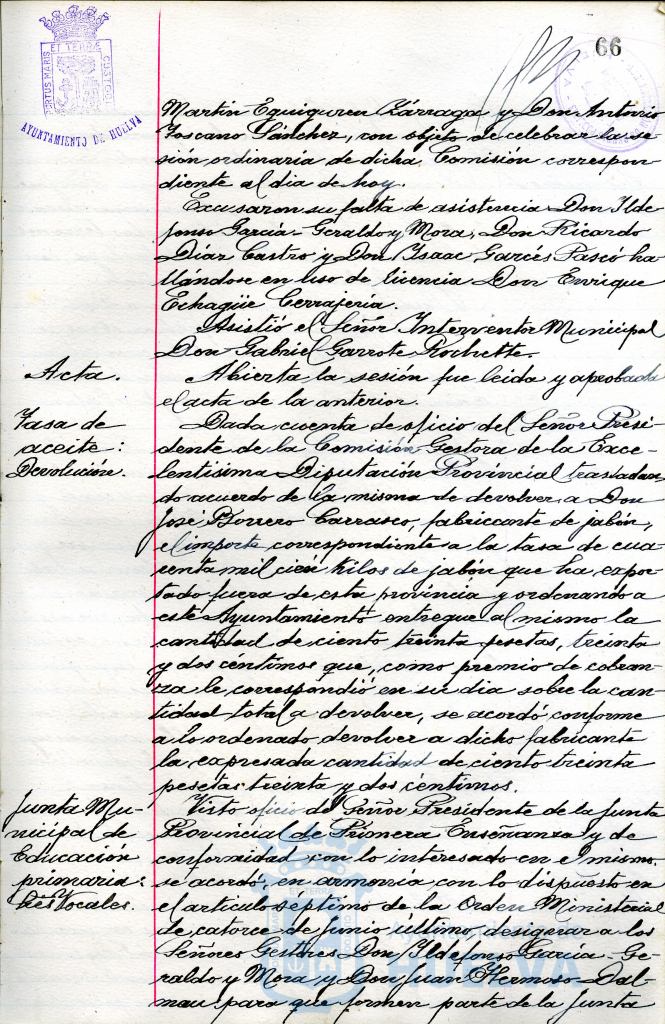 66
PORTUS MARIS ET TERRÆ CUSTODI
AYUNTAMIENTO DE HUELVA
Martin Eguiguren Zárraga y Don Antonio
Toscano Sánchez, con objeto de celebrar la se-
sión ordinaria de dicha Comisión correspon-
diente al dia de hoy.
Excusaron su falta de asistencia Don Ilde-
fonso Garcia-Geraldo y Mora, Don Ricardo
Diáz Castro y Don Isaac Garcés Pascó ha-
llándose en uso de licencia Don Enrique
Echagüe Cerrajería.
Asistió el Señor Interventor Municipal
Don Gabriel Garrote Rochette.
Acta.
Abierta la sesión fue leida y aprobada
el acta de la anterior.
Tasa de
aceite:
Devolución.
Dada cuenta de oficio del Señor Presi-
dente de la Comisión Gestora de la Exce-
lentisima Diputación Provincial trasladan-
do acuerdo de la misma de devolver a Don
José Borrero Carrasco, fabriccante de jabón,
el importe correspondiente a la tasa de cua-
renta mil cien kilos de jabón que ha expor-
tado fuera de esta provincia y ordenando a
este Ayuntamiento entregue al mismo la
cantidad de ciento treinta pesetas, treinta
y dos centimos que, como premio de cobran-
za le correspondió en su dia sobre la can-
tidad total a devolver, se acordó conforme
a lo ordenado devolver a dicho fabricante
la expresada cantidad de ciento treinta
pesetas treinta y dos céntimos.
Junta Mu-
nicipal de
Educación
primaria:
Visto oficio del Señor Presidente de la Junta
Provincial de Primera Enseñanza y de
conformidad con lo interesado en el mismo.
se acordó, en armonía con lo dispuesto en
el artículo septimo de la Orden Ministerial
de catorce de junio último, designar a los
Señores Gestores Don Ildefonso Garcia-Ge-
raldo y Mora y Don Juan Hermoso-Dal-
mau para que formen parte de la Junta
HUELVA